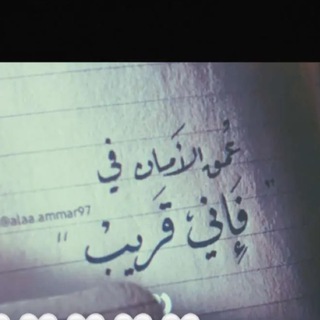 عُمق الأَمان في
@alaa.ammar97
" فَإِني قَريبْ "